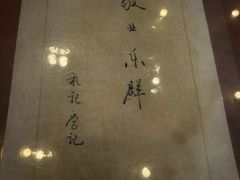 敬业乐群
礼记学记